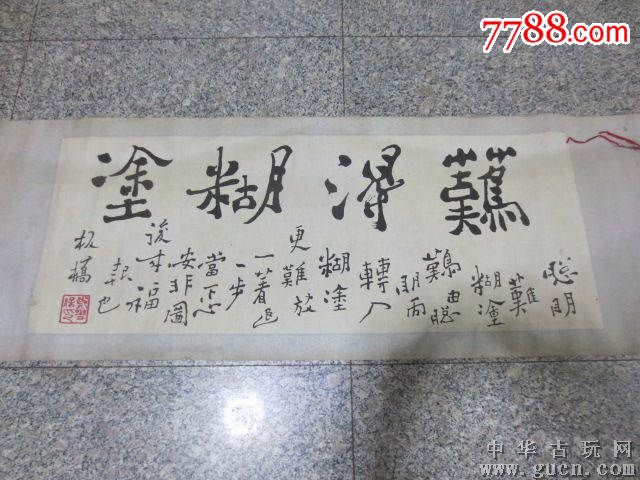 7788.com
難得糊塗
聰明
難
糊塗
難由聰
明而
轉入
糊塗
更難放
一着退
一步
當下心
安非圖
後来福
報也
板橋
中华古玩网
www.gucn.com